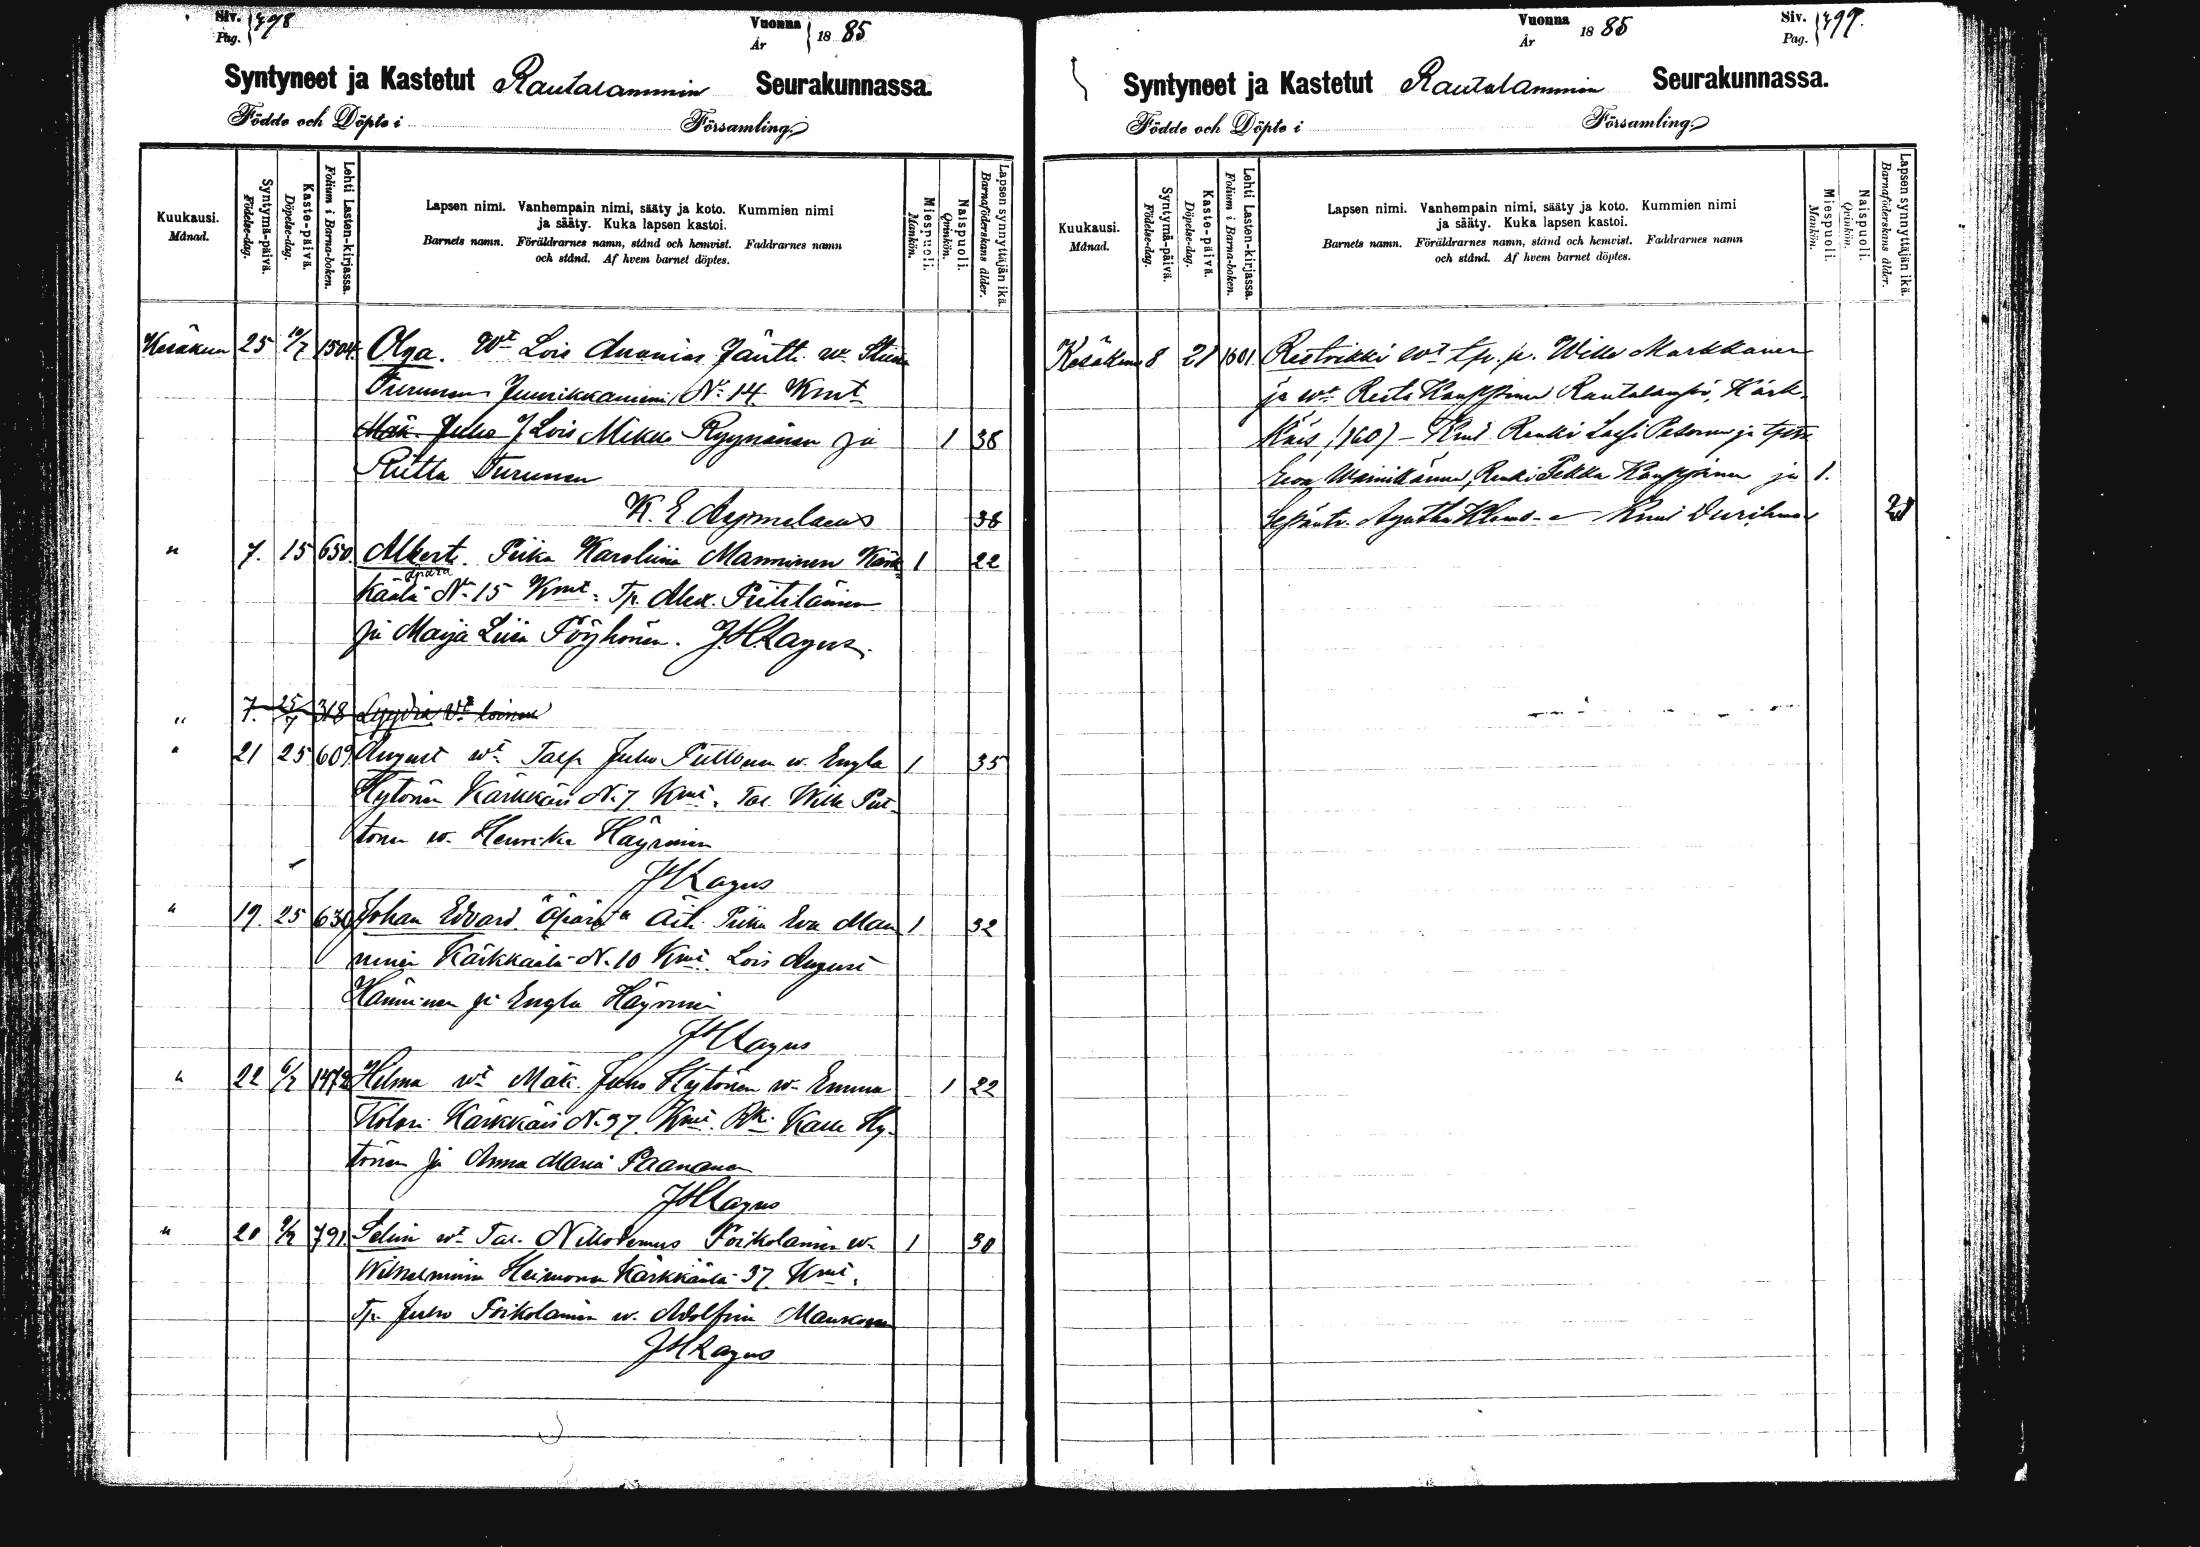 Siv. Pag. 398
Vuonna År 1885
Syntyneet ja Kastetut Rautalammin Seurakunnassa.
Födde och Döpte i Församling.
Kuukausi. Månad.
Syntymä-päivä. Födelse-dag.
Kaste-päivä. Döpelse-dag.
Lehti Lasten-kirjassa. Folium i Barna-boken.
Lapsen nimi. Vanhempain nimi, sääty ja koto. Kummien nimi
ja sääty. Kuka lapsen kastoi.
Barnets namn. Föräldrarnes namn, stånd och hemvist. Faddrarnes namn
och stånd. Af hvem barnet döptes.
Miespuoli. Mankön.
Naispuoli. Qvinkön.
Lapsen synnyttäjän ikä. Barnaföderskans ålder.
Kesäkuu 25 10/7 1504 Olga. Wt Lois Ananias Jäntti w. Stiina
Turunen No 14 Kmt
Mäk. Juho Lois Mikko Ryynänen ja 1 38
Riitta Turunen
K. E. Aspmalaeus 38
" 7. 15 650. Albert. Piika Karoliina Manninen Kärk- 1 22
käälä äpärä No 15 Kmt Tp. Alex. Piitiläinen
ja Maija Liisa Pöyhönen. J.H.Lagus.
" 7. 25/7 318 Lyydia Wt loinen
" 21 25 609. August wt Talp. Juho Puttonen w. Engla 1 35
Hytönen Kärkkäis N. 7 Kmt. Tal. Wille Put-
tonen w. Henrika Häyrinen
JHLagus
" 19. 25 630 Johan Edvard. Äpärä Äiti Piika Eva Man 1 32
ninen Kärkkäälä N. 10 Kmt. Lois August
Hänninen ja Engla Häyrinen
JHLagus
" 22 6/7 1472 Helma wt Mäk. Juho Hytönen w. Emma 1 22
Kolari Kärkkäis N. 37. Kmt. Rk. Kalle Hy-
tönen ja Anna Maria Paananen
JHLagus
" 20 9/7 791. Selim wt Tal. Nikodemus Poikolainen w. 1 30
Wilhelmiina Heimonen Kärkkäälä 37 Kmt.
Tp. Juho Poikolainen w. Adolfiina Manskonen
JHLagus
Vuonna År 1885
Siv. Pag. 399.
Syntyneet ja Kastetut Rautalammin Seurakunnassa.
Födde och Döpte i Församling.
Kuukausi. Månad.
Syntymä-päivä. Födelse-dag.
Kaste-päivä. Döpelse-dag.
Lehti Lasten-kirjassa. Folium i Barna-boken.
Lapsen nimi. Vanhempain nimi, sääty ja koto. Kummien nimi
ja sääty. Kuka lapsen kastoi.
Barnets namn. Föräldrarnes namn, stånd och hemvist. Faddrarnes namn
och stånd. Af hvem barnet döptes.
Miespuoli. Mankön.
Naispuoli. Qvinkön.
Lapsen synnyttäjän ikä. Barnaföderskans ålder.
Kesäkuu 8 21 1601. Wt Wille Markkanen
ja wt Reeta Kauppinen Rautalampi, Kärk-
käis, (160) - Kmt Renki Pesonen ja
Eeva Wainikainen, Renki Pekka Kauppinen ja 1.
Agatha 21